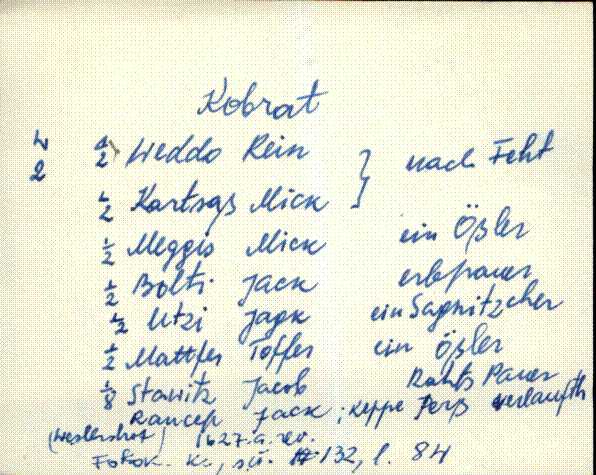 Kobrat
1/2 1/2 Weddo Rein } nach Feht
1/2 Kartsas Mick
1/2 Meggis Mick ein Ößler
1/2 Bolti Jack erbpauer
1/2 Utzi Jagk ein Sagnitzcher
1/2 Mattses Toffer ein Ößler
1/8 Stawitz Jacob Rahts Pauer
Rancep Jack; Keppe Perß verlaufth
(Westershof) 1627.a. rev.
Fotok. Ku, su. 132, l. 84